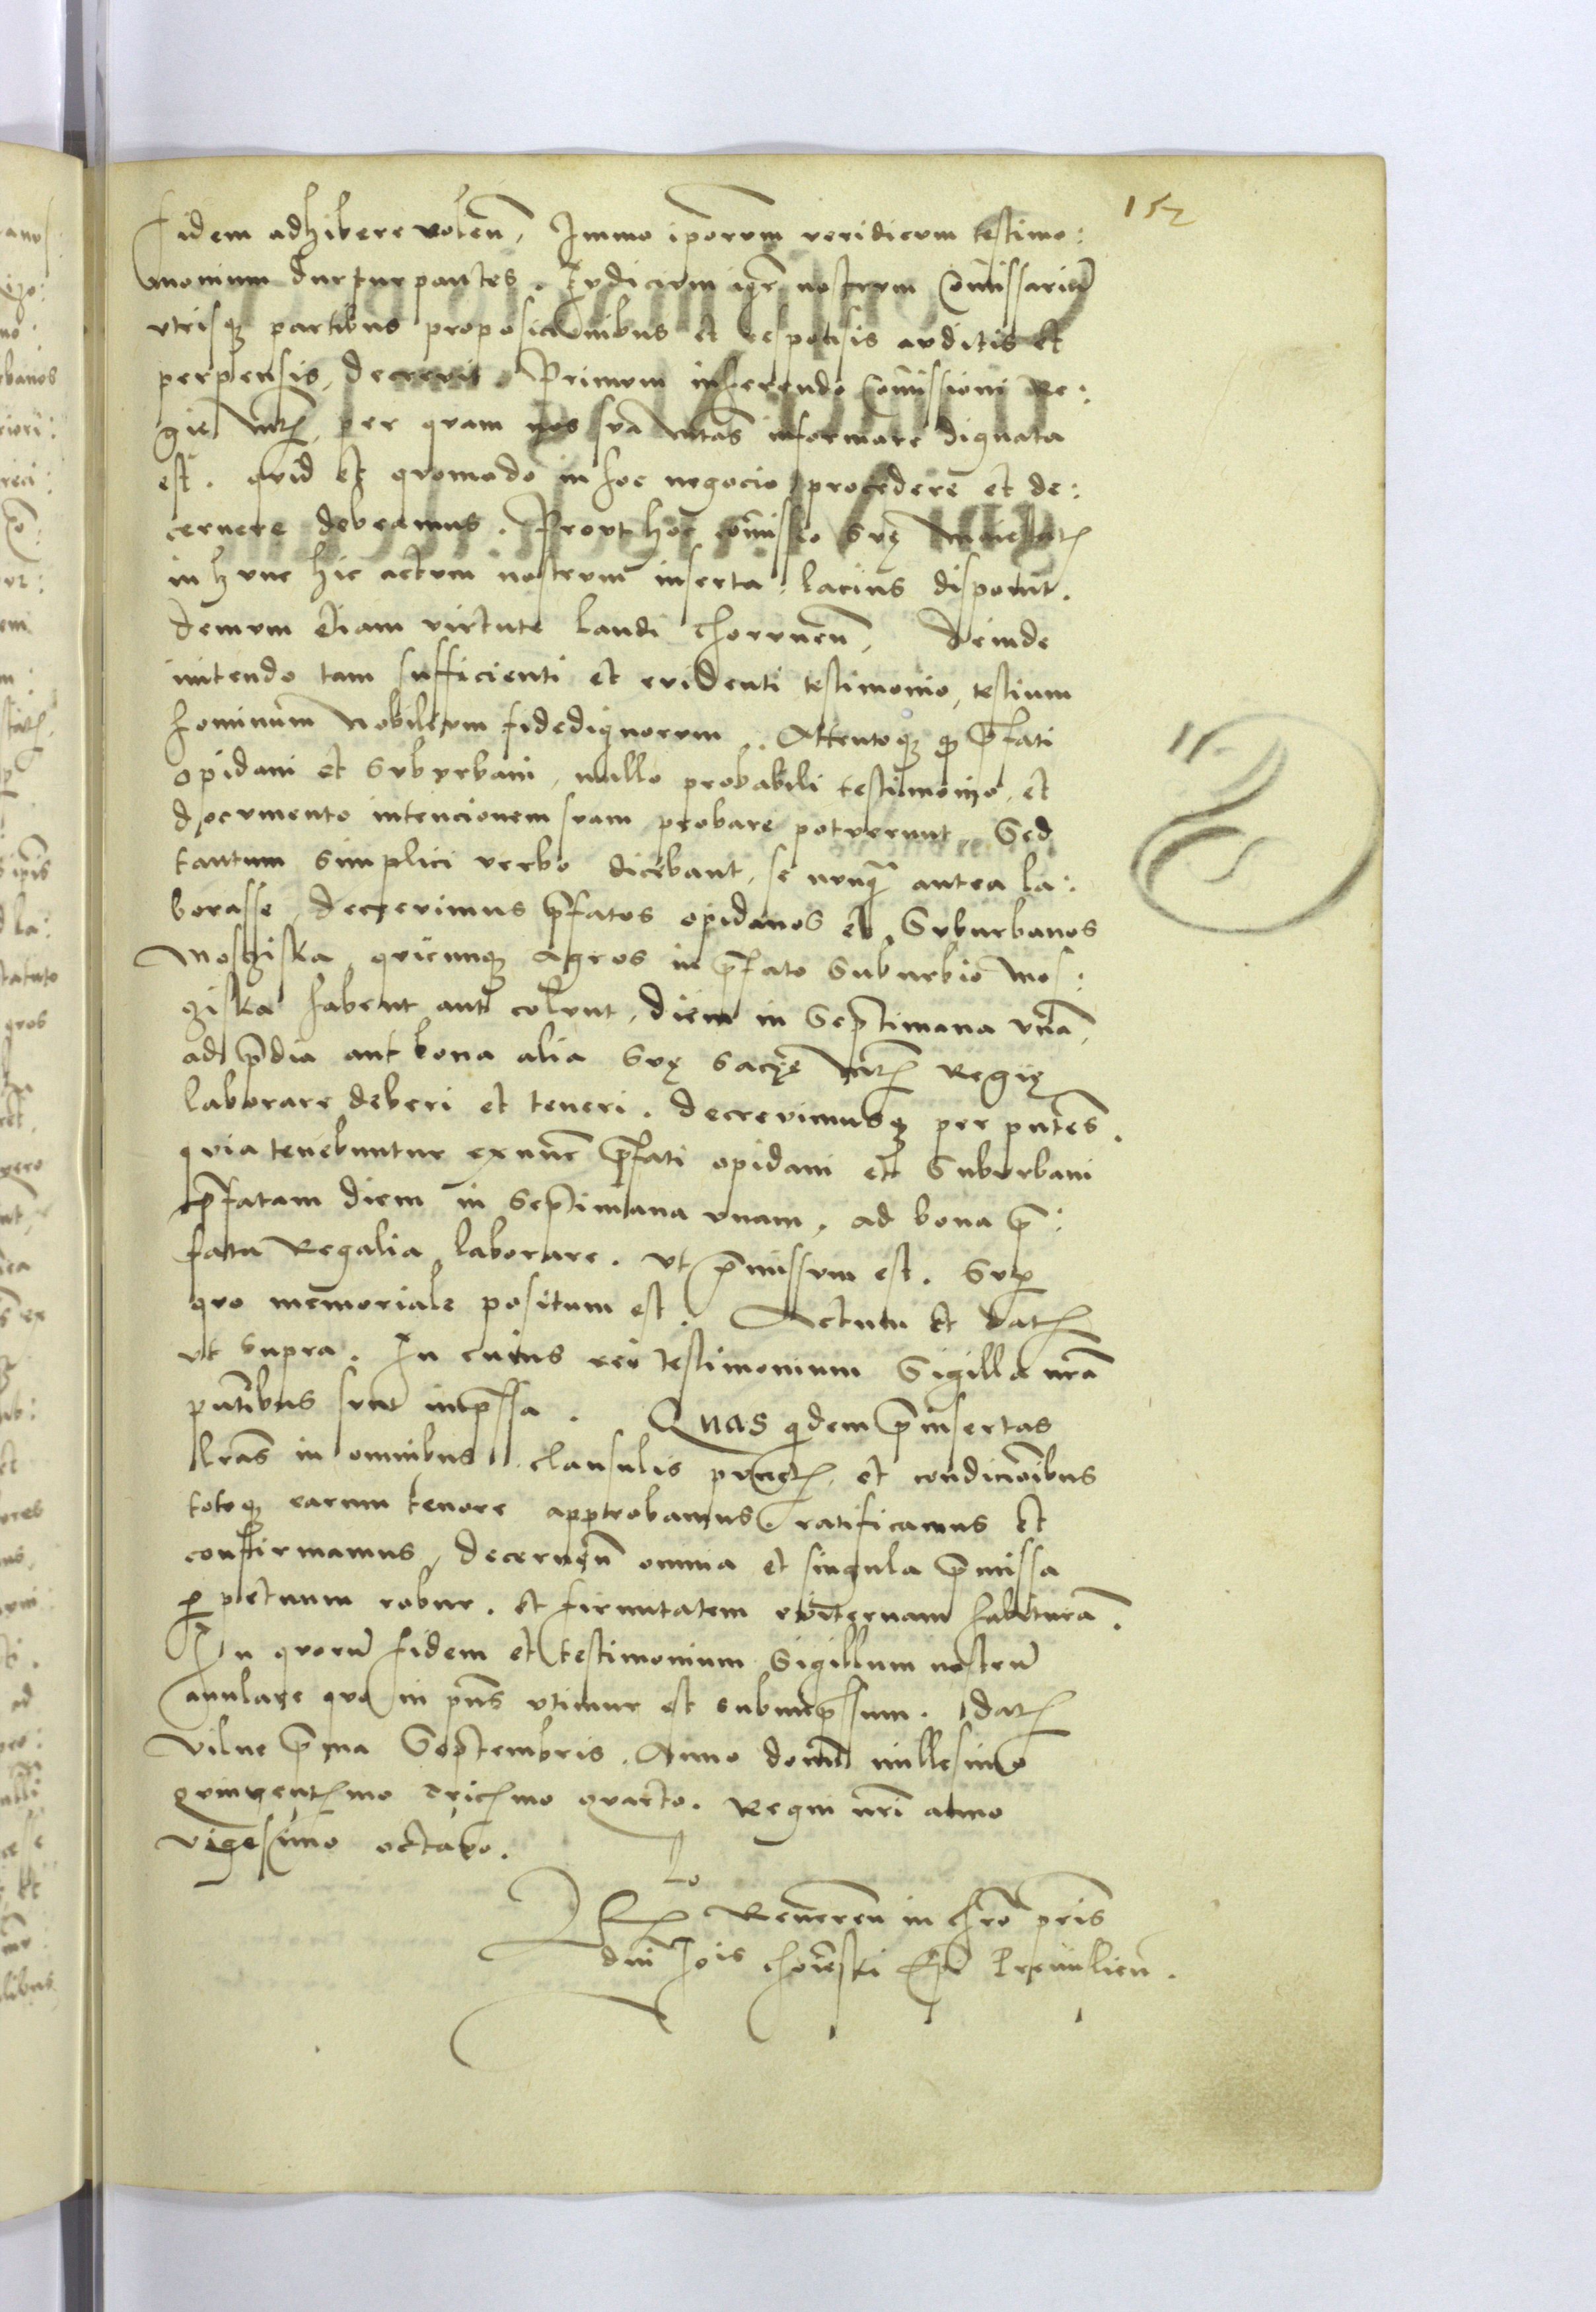 152
fidem adhibere volen̄, Immo ip̄orum veridicum testimo:
monium durturpantes. Iudicium igr̄ nostrum Com̄issariū
utrisq₃ partibus proposicionibus et responsis auditis et
perpensis, decrevit. Primum inherendo Com̄issioni Re:
gie Mt̄₃, per quam nos sua Mtās informare dignata
est. quid et quomodo in hoc negocio procedere et de:
cernere debeamus. Prout hoc com̄issio Suę Maiestat₃
in hunc hic actum nostrum inserta, lacius disponit.
Demum etiam virtute laudi Chorunen̄, Deinde
nitendo tam sufficienti et evidenti testimonio, testium
hominum Nobilium fidedignorum. Attentoq₃ q̄ p̄fati
opidani et Suburbani, nullo probabili testimonio, et
documento intencionem suam probare potuerunt, Sed
tantum simplici verbo dicebant, se nunq̄ antea la:
borasse, decrevimus p̄fatos opidanos et Suburbanos
Mosziska, quicunq₃ Agros in p̄fato Suburbio Mos:
ziska habent aut colunt, diem in Septimana unā,
ad p̄dia aut bona alia Suę Sacrę Mt̄₃ Regię
laborare deberi et teneri. decrevimusq₃ per pn̄tes.
quia tenebuntur exnunc p̄fati opidani et Suburbani
p̄fatam diem in Septimana unam, ad bona p̄:
fata Regalia laborare. ut p̄missum est. Sup̱
quo memoriale positum est. Actum et Dat₃
ut supra. In cuius rei testimonium Sigilla nr̄a
pn̄tibus sunt imp̄ssa. Quas q̄dem p̄insertas
lr̄as in omnibus clausulis punct₃ et condicionibus
totoq₃ earum tenore approbamus. ratificamus et
confirmamus, decernen̄ omnia et singula p̄missa
p̱petuum robur. et firmitatem eviternam habiturā.
In quorū fidem et testimonium Sigillum nostrū
anulare quo in pn̄s utimur est subimp̄ssum. Dat₃
Vilne p̄ma Septembris. Anno domī millesimo
quingent₃mo tric₃mo quarto. Regni nr̄i anno
vigesimo octavo.
Rl̄o Reveren̄ in Chro pr̄is
dnī Jois Choienski Ep̄i Premislien̄.